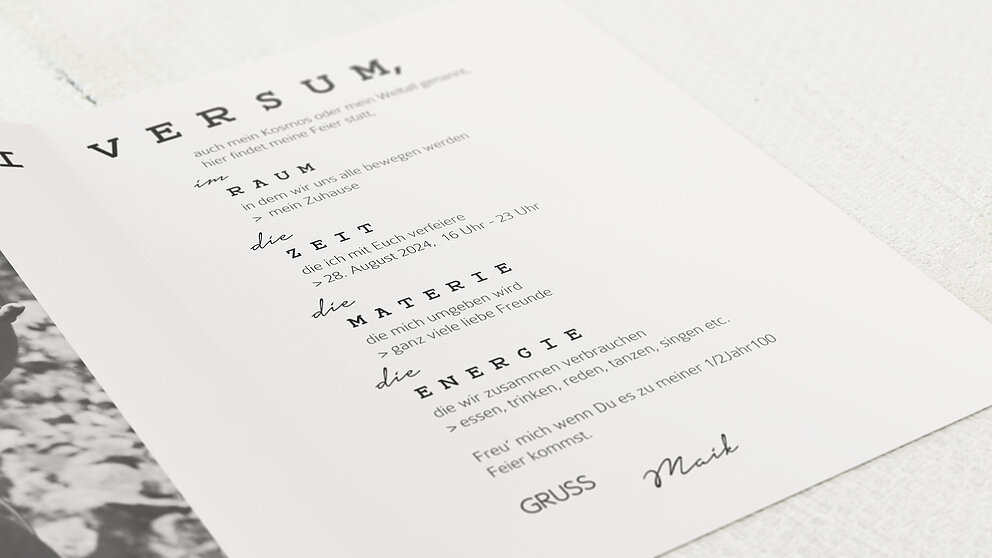 I VERSUM,
auch mein Kosmos oder mein Weltall genannt,
hier findet meine Feier statt,
im
RAUM
in dem wir uns alle bewegen werden
> mein Zuhause
die
ZEIT
die ich mit Euch verfeiere
> 28. August 2024, 16 Uhr - 23 Uhr
die
MATERIE
die mich umgeben wird
> ganz viele liebe Freunde
die
ENERGIE
die wir zusammen verbrauchen
> essen, trinken, reden, tanzen, singen etc.
Freu' mich wenn Du es zu meiner 1/2Jahr100
Feier kommst.
GRUSS Maik